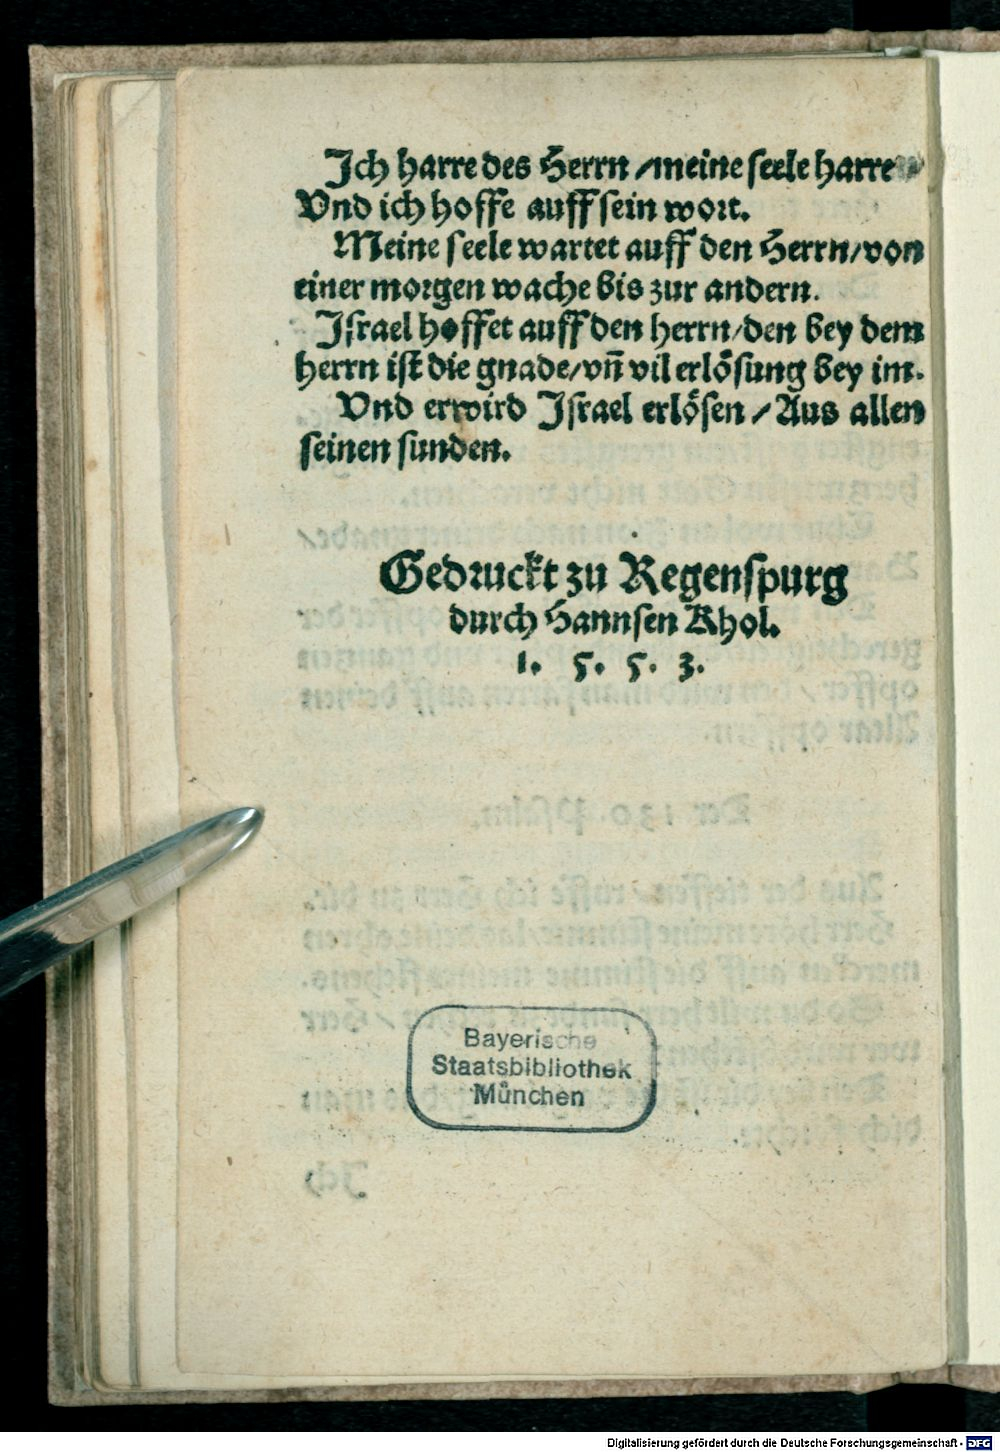 Ich harre des Herrn/meine seele harre
Vnd ich hoffe auff sein wort.
Meine seele wartet auff den Herrn/von
einer morgen wache bis zur andern.
Israel hoffet auff den herrn/den bey dem
herrn ist die gnade/vñ vil erlösung bey im.
Vnd er wird Israel erlösen/Aus allen
seinen sunden.
Gedruckt zu Regenspurg
durch Hannsen Khol.
1. 5. 5. 3.
Bayerische
Staatsbibliothek
München
Digitalisierung gefördert durch die Deutsche Forschungsgemeinschaft - DFG